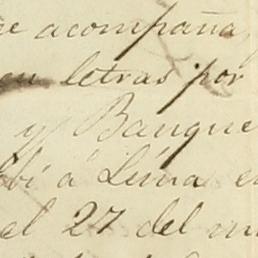 e acompaña,
en letras por
y Banque
bí á Lima e
el 27 del m